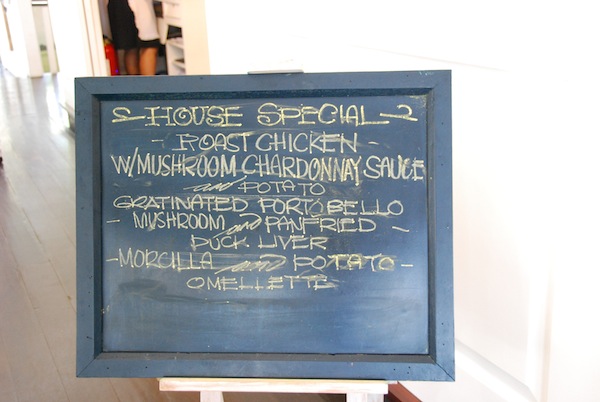 HOUSE SPECIAL
- ROAST CHICKEN -
W/MUSHROOM CHARDONNAY SAUCE
and POTATO
GRATINATED PORTOBELLO
- MUSHROOM and PANFRIED -
DUCK LIVER
- MORCILLA and POTATO -
OMELLETTE